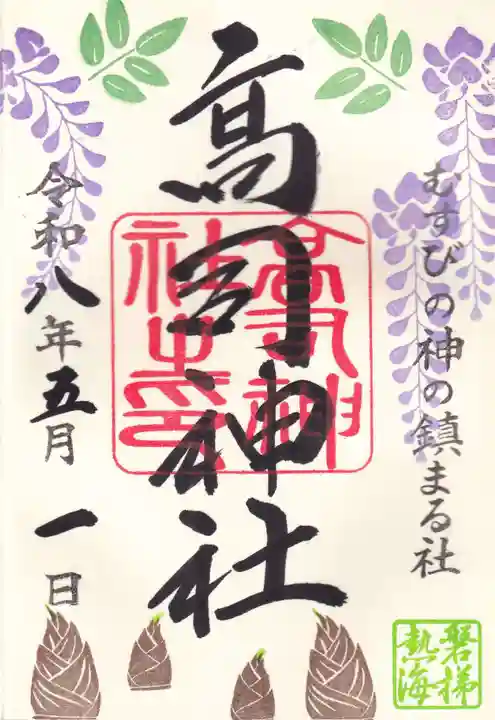 むすびの神の鎮まる社
高司神社
高司神社之印
令和八年五月一日
磐梯熱海